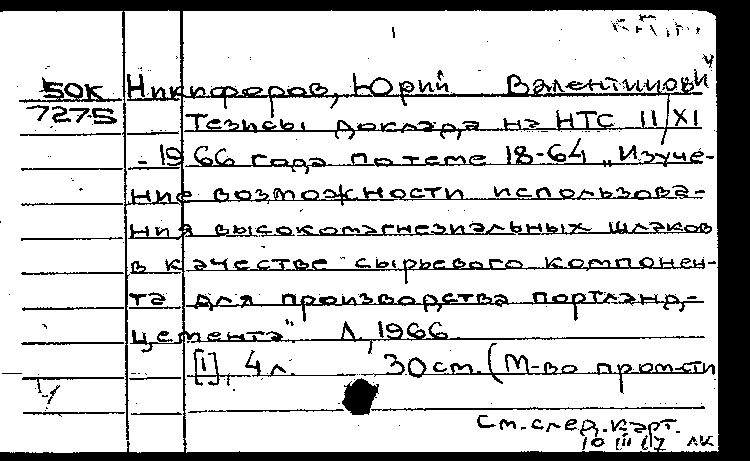 50К Никифоров, Юрий Валентинович
7275 Тезисы доклада на НТС II/XI
-1966 года по теме 18-64 „Изуче-
ние возможности использова-
ния высокомагнезиальных шлаков
в качестве сырьевого компонен-
та для производства портланд-
цемента" Л., 1966
[1], 4 л. 30 см. (М-во пром-сти
См. след. карт.
ЛК